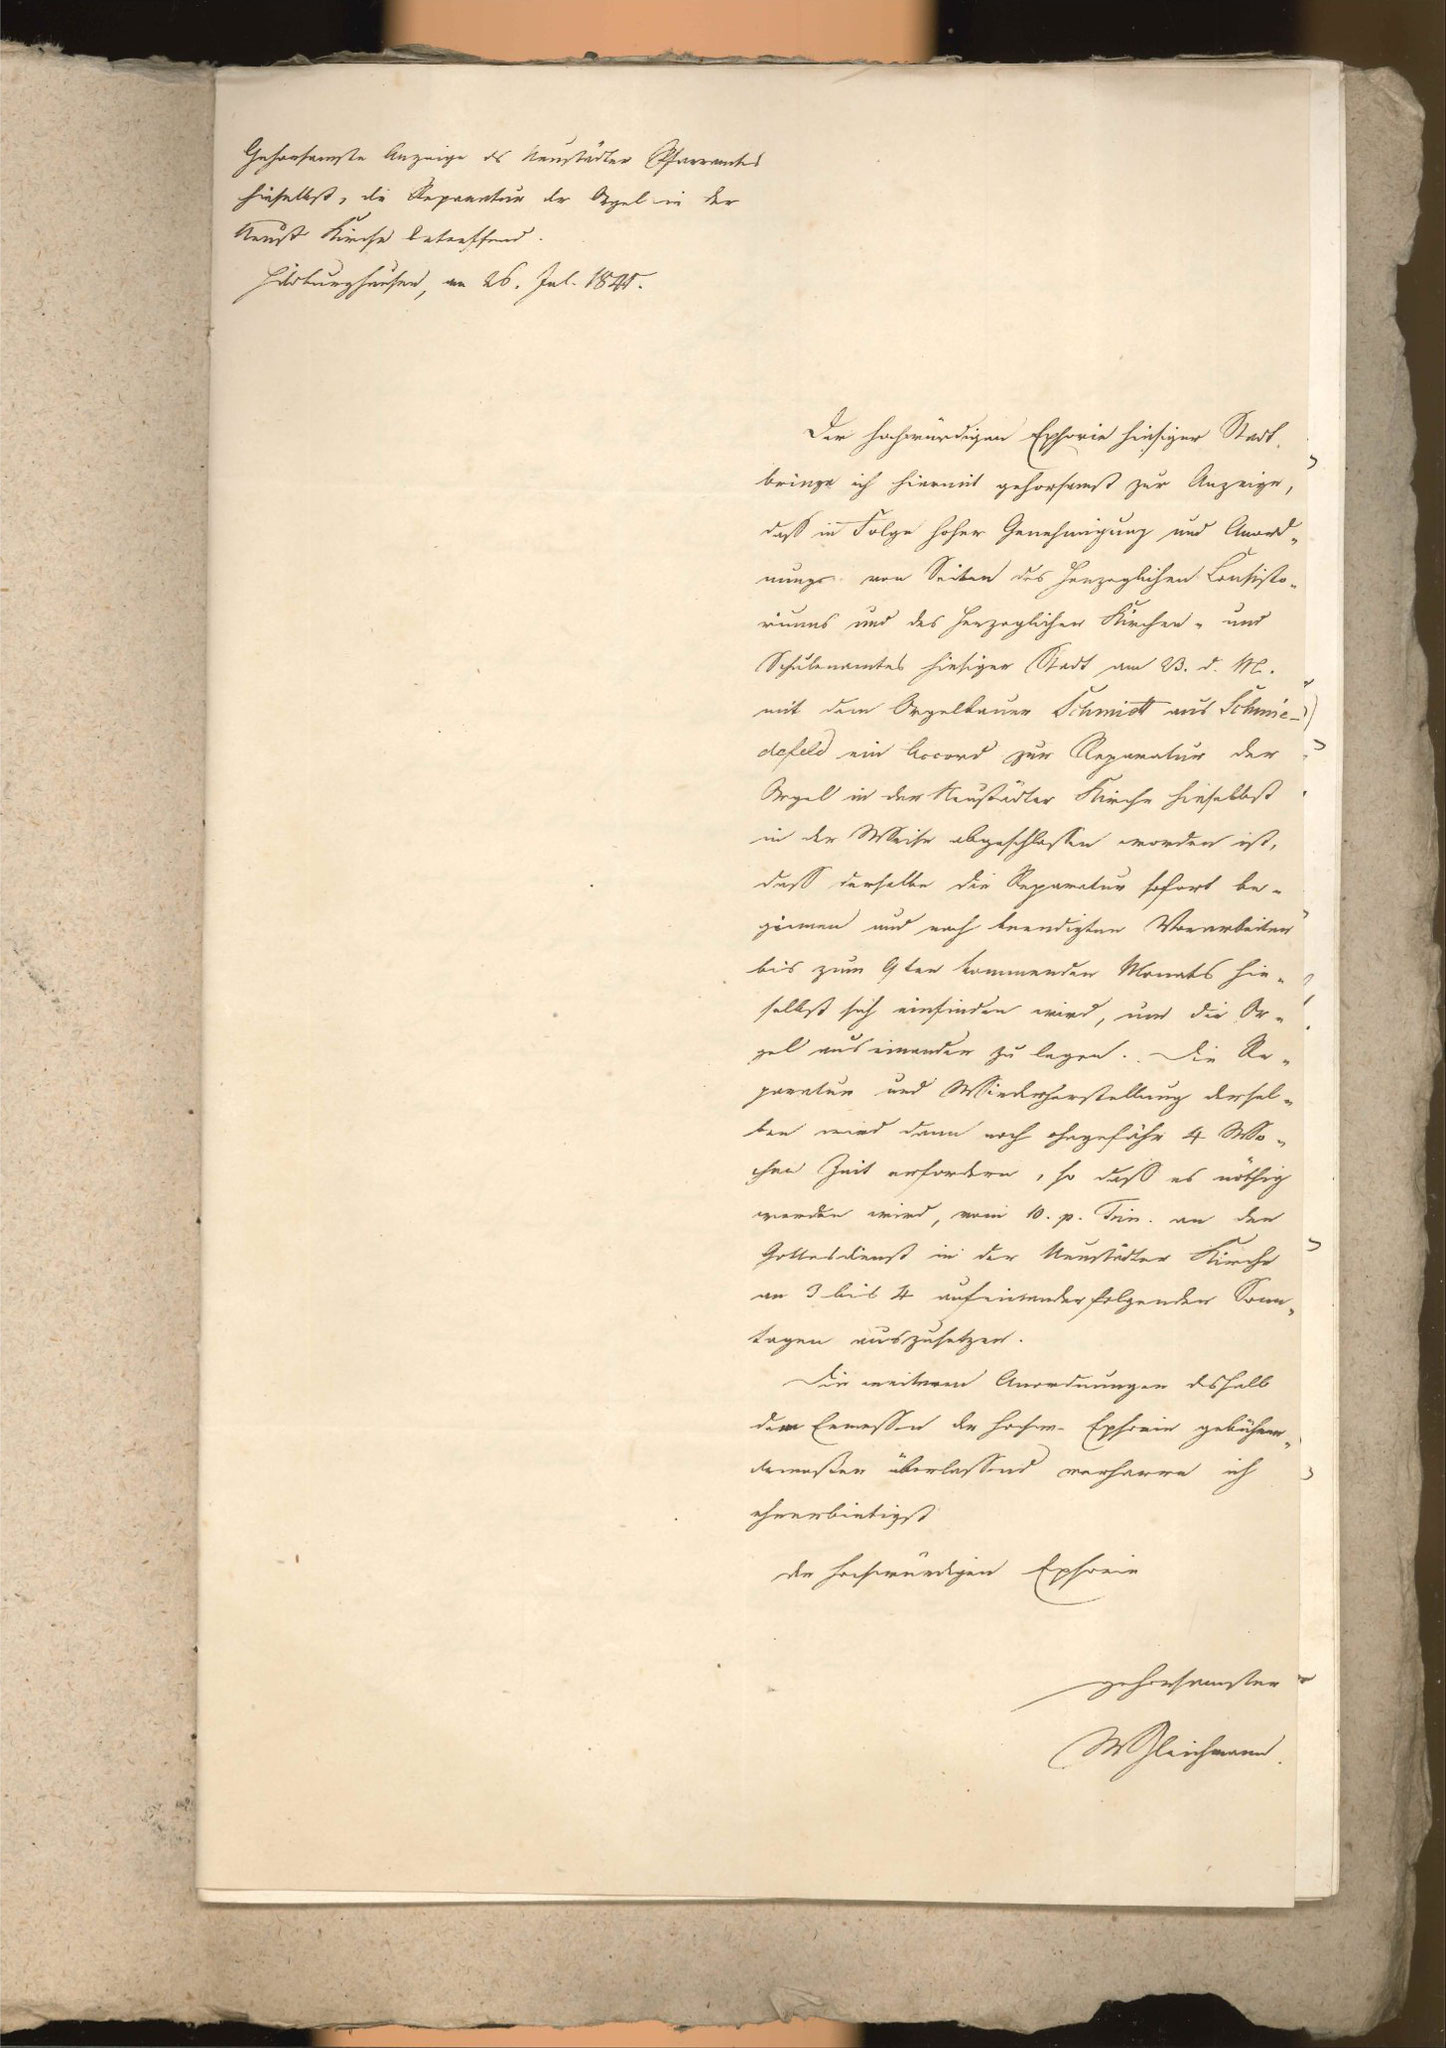 Gehorsamste Anzeige des Neustädter Pfarramtes
hieselbst, die Reparatur der Orgel in der
Neust. Kirche betreffend.
Hildburghausen, am 26. Jul. 1841.
Der hochwürdigen Ephorie hiesiger Stadt
bringe ich hiermit gehorsamst zur Anzeige,
daß in Folge hoher Genehmigung und Anord-
nung von Seiten des Herzoglichen Consisto-
riums und des Herzoglichen Kirchen- und
Schulenamtes hiesiger Stadt am 23. d. M.
mit dem Orgelbauer Schmidt aus Schmie-
defeld ein Accord zur Reparatur der
Orgel in der Neustädter Kirche hieselbst
in der Weise abgeschlossen worden ist,
daß derselbe die Reparatur sofort be-
ginnen und nach beendigten Vorarbeiten
bis zum 9ten kommenden Monats hie-
selbst sich einfinden wird, um die Or-
gel auseinander zu legen. Die Re-
paratur und Wiederherstellung dersel-
ben wird dann noch ohngefähr 4 Wo-
chen Zeit erfordern, so daß es nöthig
werden wird, vom 10. p. Trin. an den
Gottesdienst in der Neustädter Kirche
an 3 bis 4 aufeinanderfolgenden Sonn-
tagen auszusetzen.
Die weiteren Anordnungen deshalb
dem Ermessen der hochw. Ephorie gebühren-
dermaßen überlassend verharre ich
ehrerbietigst
der hochwürdigen Ephorie
gehorsamster
WGleichmann.